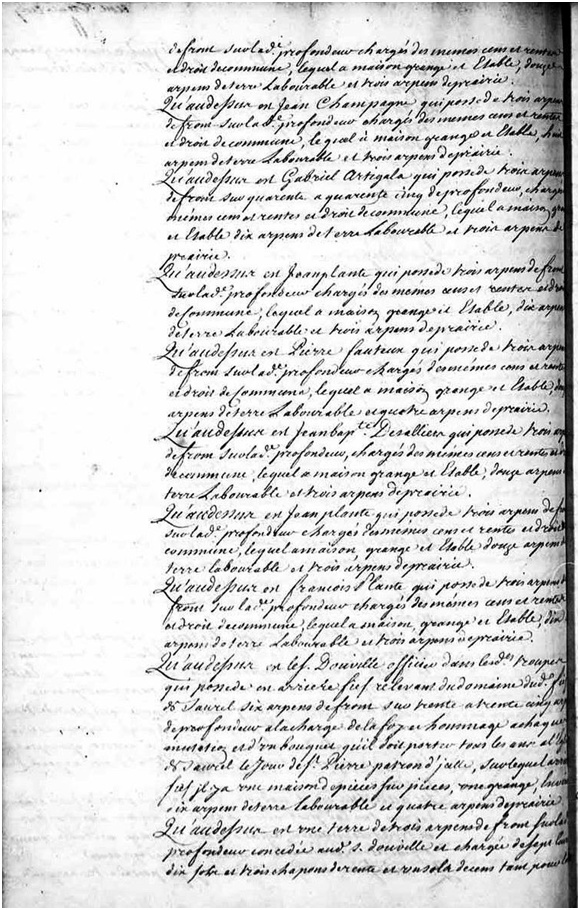 de front sur lad.e profondeur chargés des memes cens et rentes
et droit de commune, lequel a maison grange et Etable, douze
arpens de terre Labourable et trois arpens de prairie.
Qu'audessus est Jean Champagne qui possede trois arpens
de front sur lad.e profondeur chargés des memes cens et rentes
et droit de commune, lequel à maison grange et Etable,
arpens de terre Labourable et trois arpens de prairie.
Qu'audessus est Gabriel Artigala qui possede trois arpens
de front sur quarente a quarente cinq de profondeur, chargés
mémes cens et rentes et droit de commune, lequel a maison
et Etable dix arpens de terre Labourable et trois arpens de
prairie.
Qu'audessus est Jean plante qui possede trois arpens de front
sur lad.e profondeur chargés des mémes cens et rentes et droit
de commune, lequel a maison grange et Etable, dix arpens
de terre Labourable et trois arpens de prairie.
Qu'audessus est Pierre fauteux qui possede trois arpens
de front sur lad.e profondeur chargés des mémes cens et rentes
et droit de Commune, lequel a maison grange et Etable,
arpens de terre Labourable et quatre arpens de prairie.
Qu'audessus est Jean bap.te Desalliers qui possede trois arpens
de front sur lad.e profondeur, chargés des mémes cens et rentes et
de commune, lequel a maison grange et Etable, douze arpens
terre Labourable et trois arpens de prairie.
Qu'audessus est Jean plante qui possede trois arpens de
sur lad.e profondeur chargés des mémes cens et rentes et droit
commune, lequel a maison, grange et Etable douze arpens
terre labourable et trois arpens de prairie.
Qu'audessus est francois Plante qui possede trois arpens
front sur lad.e profondeur chargés des mémes cens et rentes
et droit de commune, lequel a maison, grange et Etable, dix
arpens de terre Labourable et trois arpens de prairie.
Qu'audessus est le s. Douville officier dans lesd.es troupes
qui possede en arriere fief relevant du domaine dud. fief
de Saurel six arpens de front sur trente a trente cinq arpens
de profondeur a la charge de la foy et hommage a chaque
mutation et d'un bouquet qu'il doit porter tous les ans a
de Saurel le Jour de S.t Pierre patron d'jcelle, sur lequel
fief, il y a une maison de pieces sur pieces, une grange,
dix arpens de terre labourable et quatre arpens de prairie
Qu'audessus est une terre de trois arpens de front sur lad.e
profondeur concedée aud. s. douville et chargée de sept
dix sols et trois chapons de rente et un sol de cens tant pour